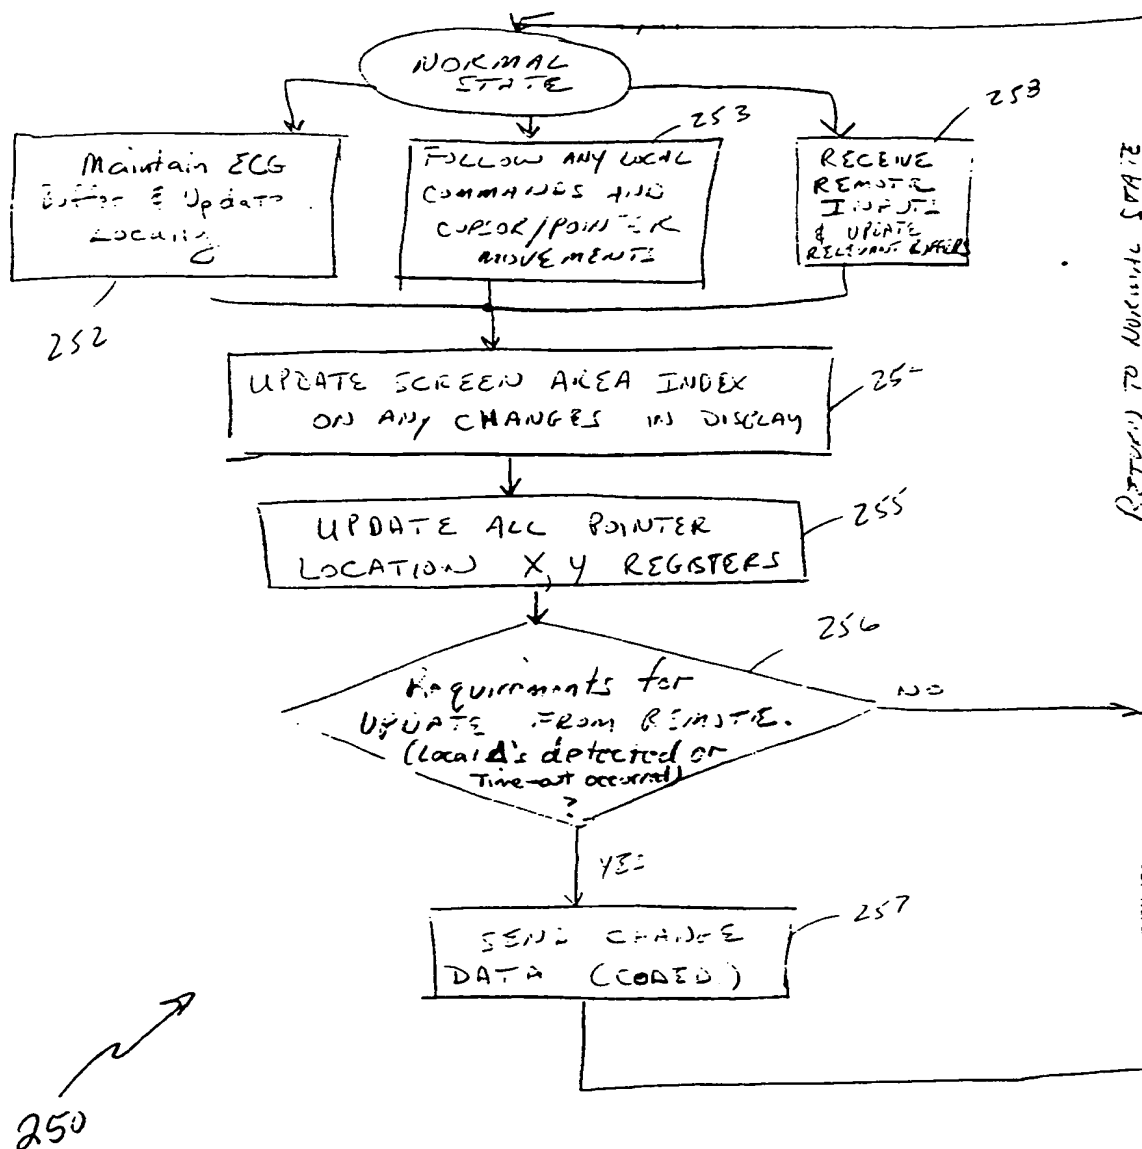 NORMAL
STATE
253
258
Maintain ECG
Buffer & Update
Locally
252
FOLLOW ANY LOCAL
COMMANDS AND
CURSOR/POINTER
MOVEMENTS
RECEIVE
REMOTE
INPUTS
& UPDATE
RELEVANT BUFFERS
RETURN TO NORMAL STATE
UPDATE SCREEN AREA INDEX
ON ANY CHANGES IN DISPLAY
UPDATE ALL POINTER
LOCATION X,Y REGISTERS
255
256
Requirments for
UPDATE FROM REMOTE.
(Local Δ's detected or
Time-out occurred)
?
NO
YES
SEND CHANGE
DATA (CODED)
257
250